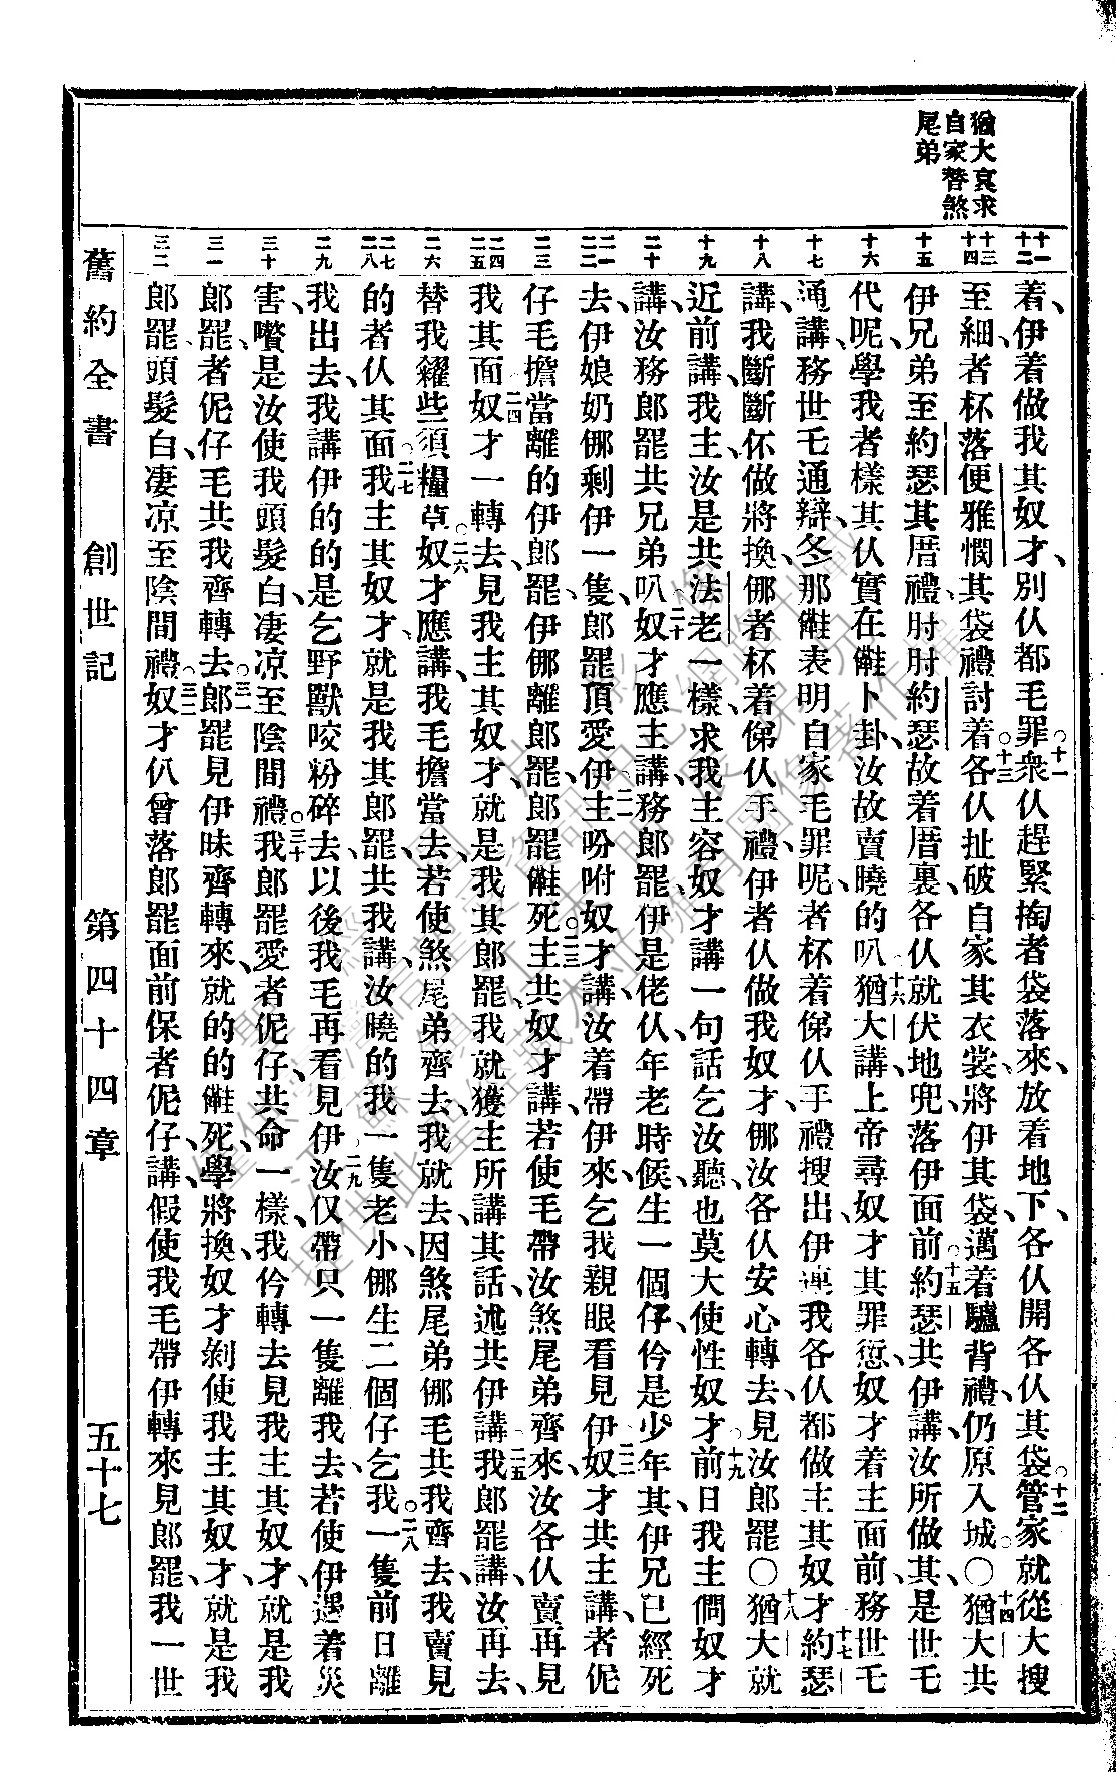 猶大哀求
自家替煞
尾弟
十一 十二
十三 十四
十五
十六
十七
十八
十九
二十
二一 二二
二三
二四 二五
二六
二七 二八
二九
三十
三一
三二
着、伊着做我其奴才、別仈都毛罪。十一衆仈趕緊掏者袋落來、放着地下、各仈開各仈其袋。十二管家就從大搜
至細、者杯落便雅憫其袋禮討着。十三各仈扯破自家其衣裳、將伊其袋、邁着驢背禮、仍原入城。〇十四猶大共
伊兄弟至約瑟其厝禮、肘肘約瑟故着厝裏、各仈就伏地兜、落伊面前。十五約瑟共伊講、汝所做其、是世乇
代呢、學我者樣其仈、實在𠲥卜卦、汝故賣曉的叭。十六猶大講、上帝尋奴才其罪愆、奴才着主面前、務世乇
通講、務世乇通辯、冬那𠲥表明自家毛罪呢、者杯着俤仈手禮搜出、伊連我各仈都做主其奴才。十七約瑟
講、我斷斷伓做將換、㑚者杯着俤仈手禮、伊者仈做我奴才、㑚汝各仈安心轉去、見汝郎罷。〇十八猶大就
近前講、我主、汝是共法老一樣、求我主容奴才講一句話乞汝聽、也莫大使性奴才。十九前日我主問奴才
講、汝務郎罷共兄弟叭。二十奴才應主講、務郎罷、伊是佬仈、年老時候、生一個仔、伱是少年其、伊兄已經死
去、伊娘奶㑚剩伊一隻、郎罷頂愛伊。二一主吩咐奴才講、汝着帶伊來、乞我親眼看見伊。二二奴才共主講、者伲
仔毛擔當離的伊郎罷、伊㑚離郎罷、郎罷𠲥死。二三主共奴才講、若使毛帶汝煞尾弟齊來、汝各仈賣再見
我其面。二四奴才一轉去、見我主其奴才、就是我其郎罷、我就獲主所講其話、述共伊講。二五我郎罷講、汝再去、
替我糴些須糧草。二六奴才應講、我毛擔當去、若使煞尾弟齊去、我就去、因煞尾弟㑚毛共我齊去、我賣見
的者仈其面。二七我主其奴才、就是我其郎罷、共我講、汝曉的我一隻老小、㑚生二個仔乞我。二八一隻前日離
我出去、我講伊的的是乞野獸咬粉碎去、以後我毛再看見伊。二九汝仅帶只一隻離我去、若使伊遇着災
害、嚽是汝使我頭髮白、凄凉至陰間禮。三十我郎罷愛者伲仔、共命一樣、我伱轉去見我主其奴才、就是我
郎罷、者伲仔毛共我齊轉去。三一郎罷見伊昧齊轉來、就的的𠲥死、學將換、奴才剝使我主其奴才、就是我
郎罷頭髮白、凄凉至陰間禮。三二奴才仈曾落郎罷面前保者伲仔、講、假使我毛帶伊轉來見郎罷、我一世
舊約全書 創世記 第四十四章 五十七